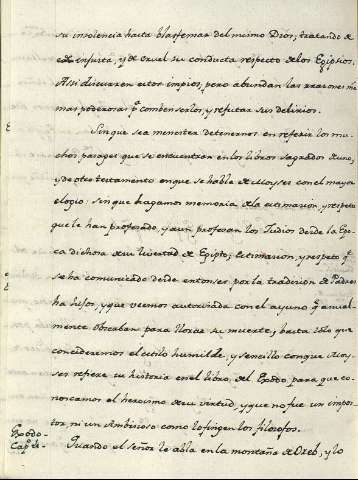 su insolencia hasta blasfemar del mismo Dios, tratando de
de injusta, y de cruel su conducta respecto de los Egipcios.
Assi discurren estos impios, pero abundan las razones
mas poderosas pª combenserlos, y refutar sus delirios.
Sin que sea menester detenernos en referir los mu-
chos parages que se encuentran en los libros sagrados de uno,
y de otro testamento en que se habla de Moysses con el mayor
elogio: sin que hagamos memoria de la estimacion, y respeto
que le han profesado, y aun profesan los Judios desde la Epo-
ca dichosa de su livertad de Egipto; estimacion, y respeto qe
se ha comunicado desde entonses por la tradicion de Padres
ha hijos, y que vemos autorisada con el ayuno qe anual-
mente obserbaban para llorar su muerte; basta solo que
concideremos el estilo humilde, y sencillo con que Moy-
ses refiere su historia en el libro del Exodo, para que co-
noscamos el heroismo de su virtud, y que no fue un impos-
tor, ni un Ambisioso como lo fingen los filosofos.
Exodo-
Cap. 4.
Quando el señor le abla en la montaña de Oreb, y lo